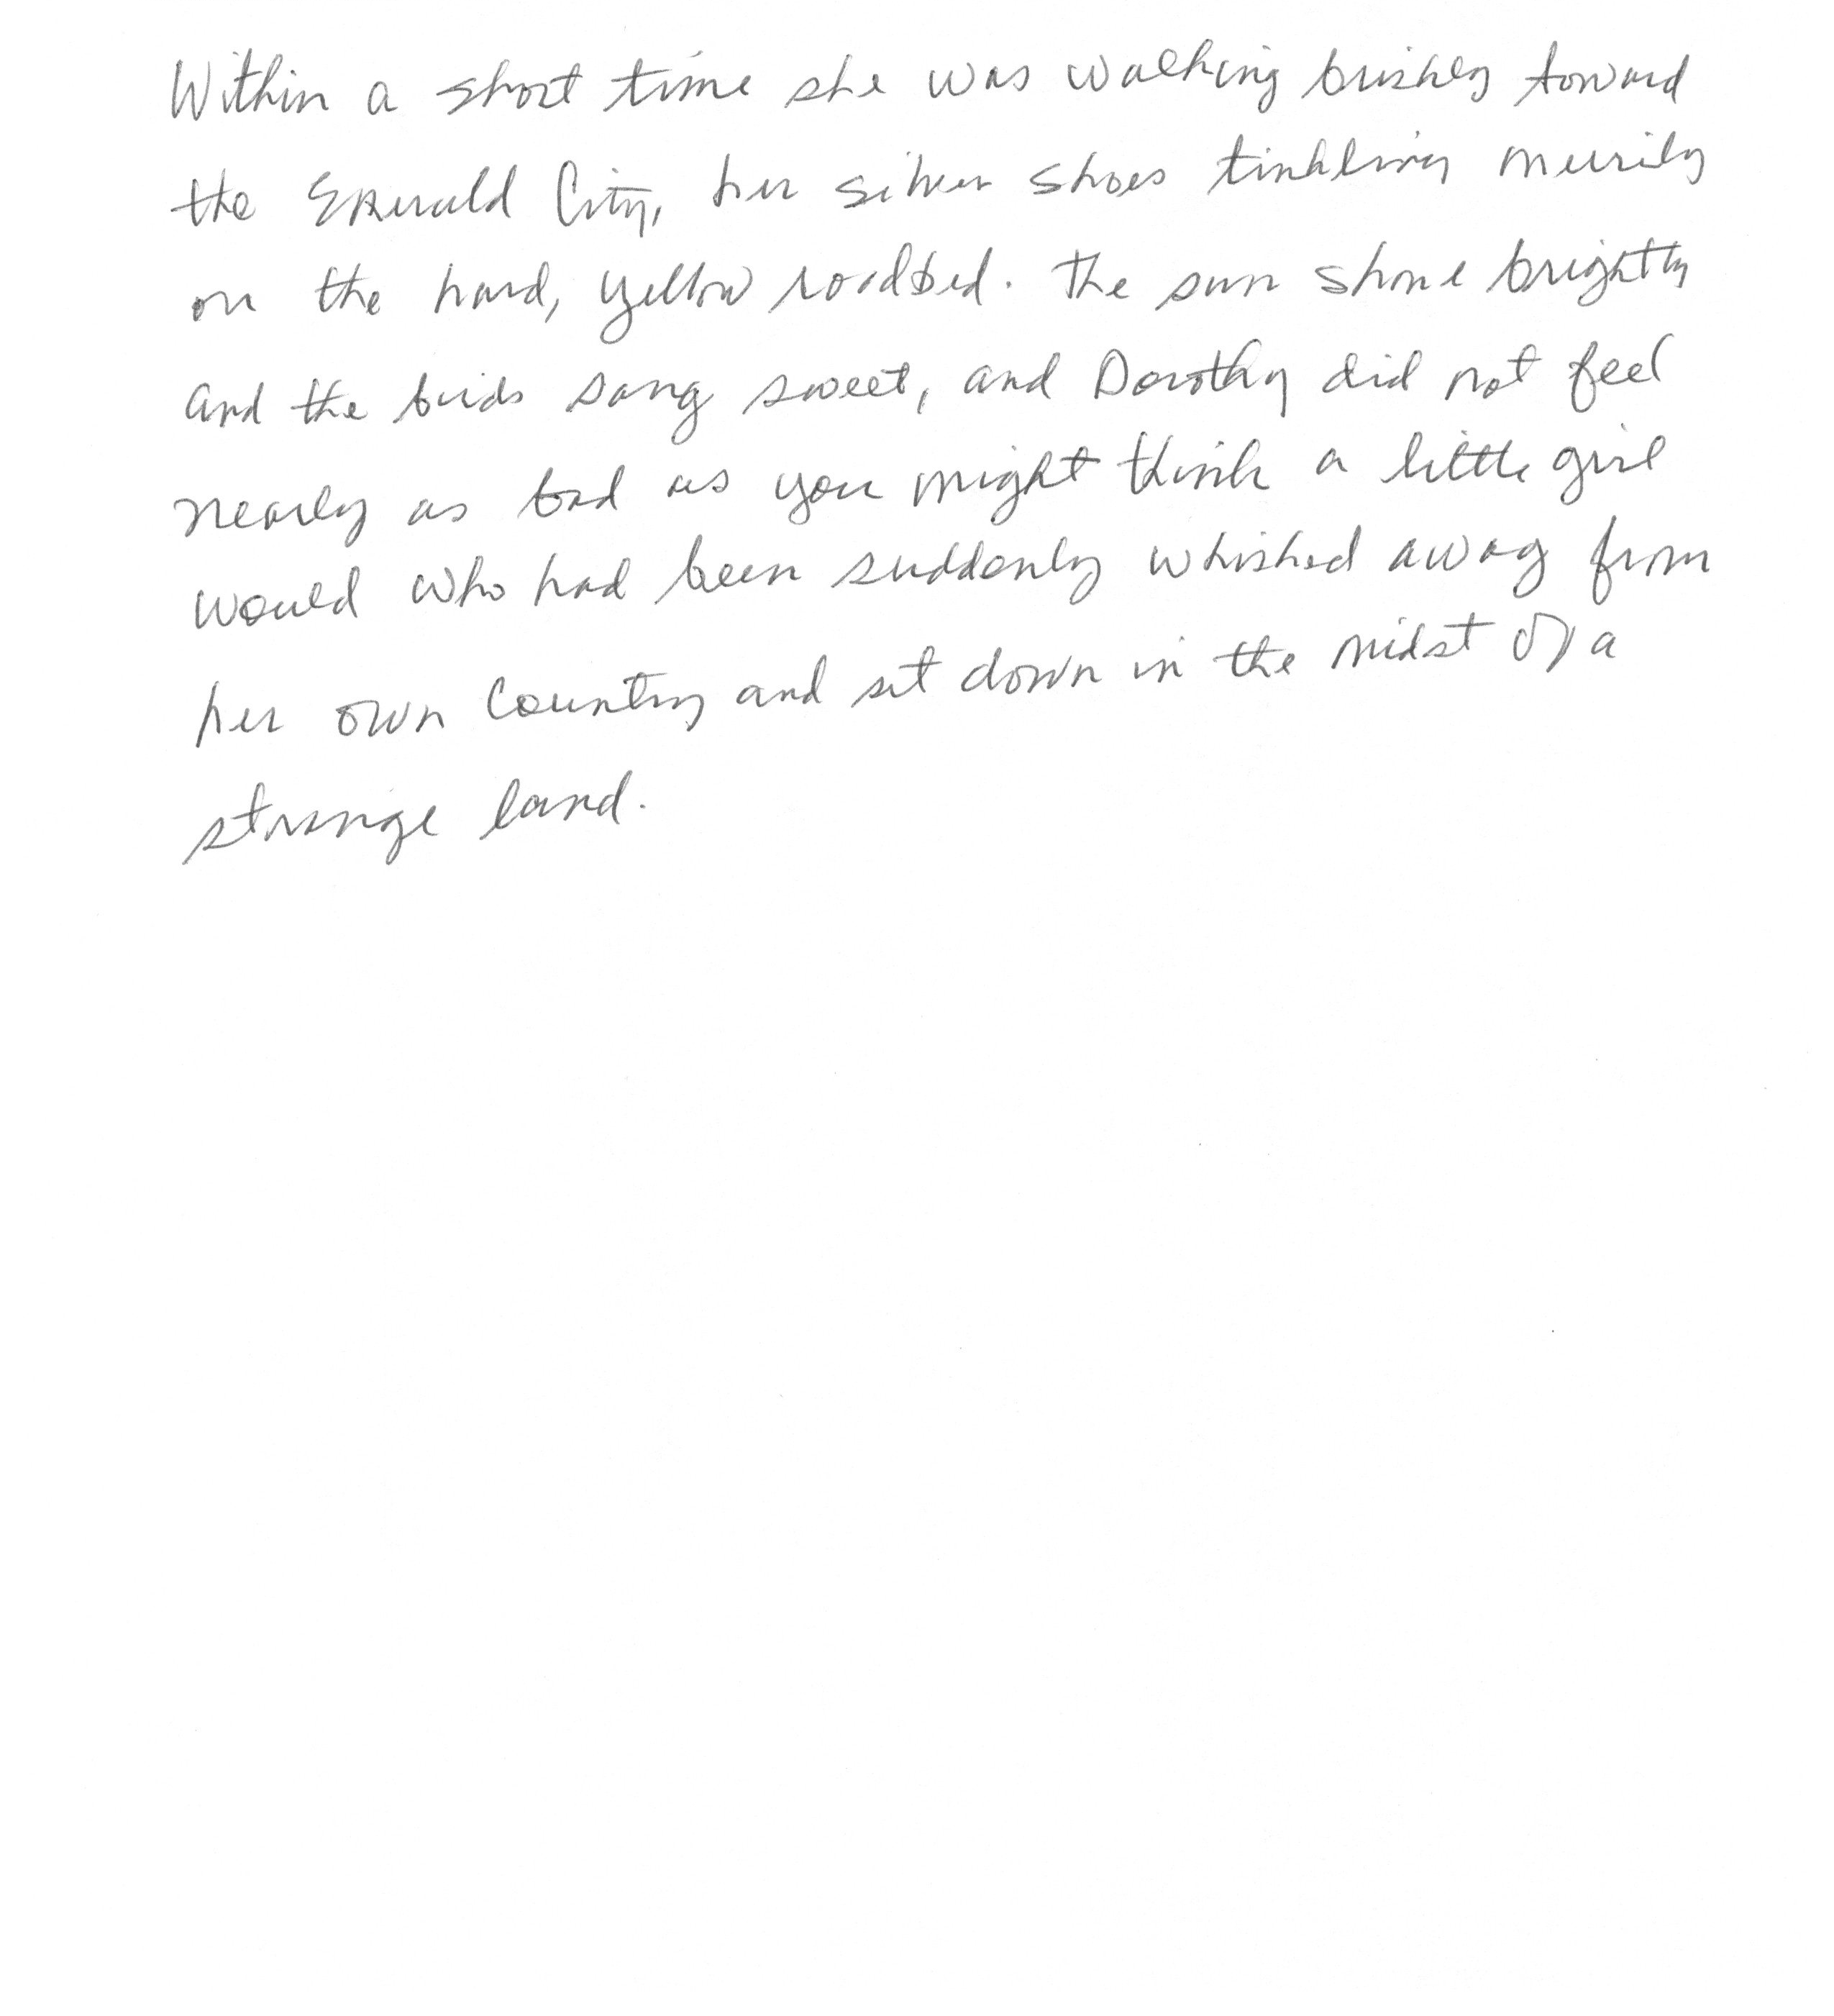 Within a short time she was walking briskly toward
the Emerald City, her silver shoes tinkling merrily
on the hard, yellow roadbed. The sun shone brightly
and the birds sang sweet, and Dorothy did not feel
nearly as bad as you might think a little girl
would who had been suddenly whisked away from
her own country and set down in the midst of a
strange land.